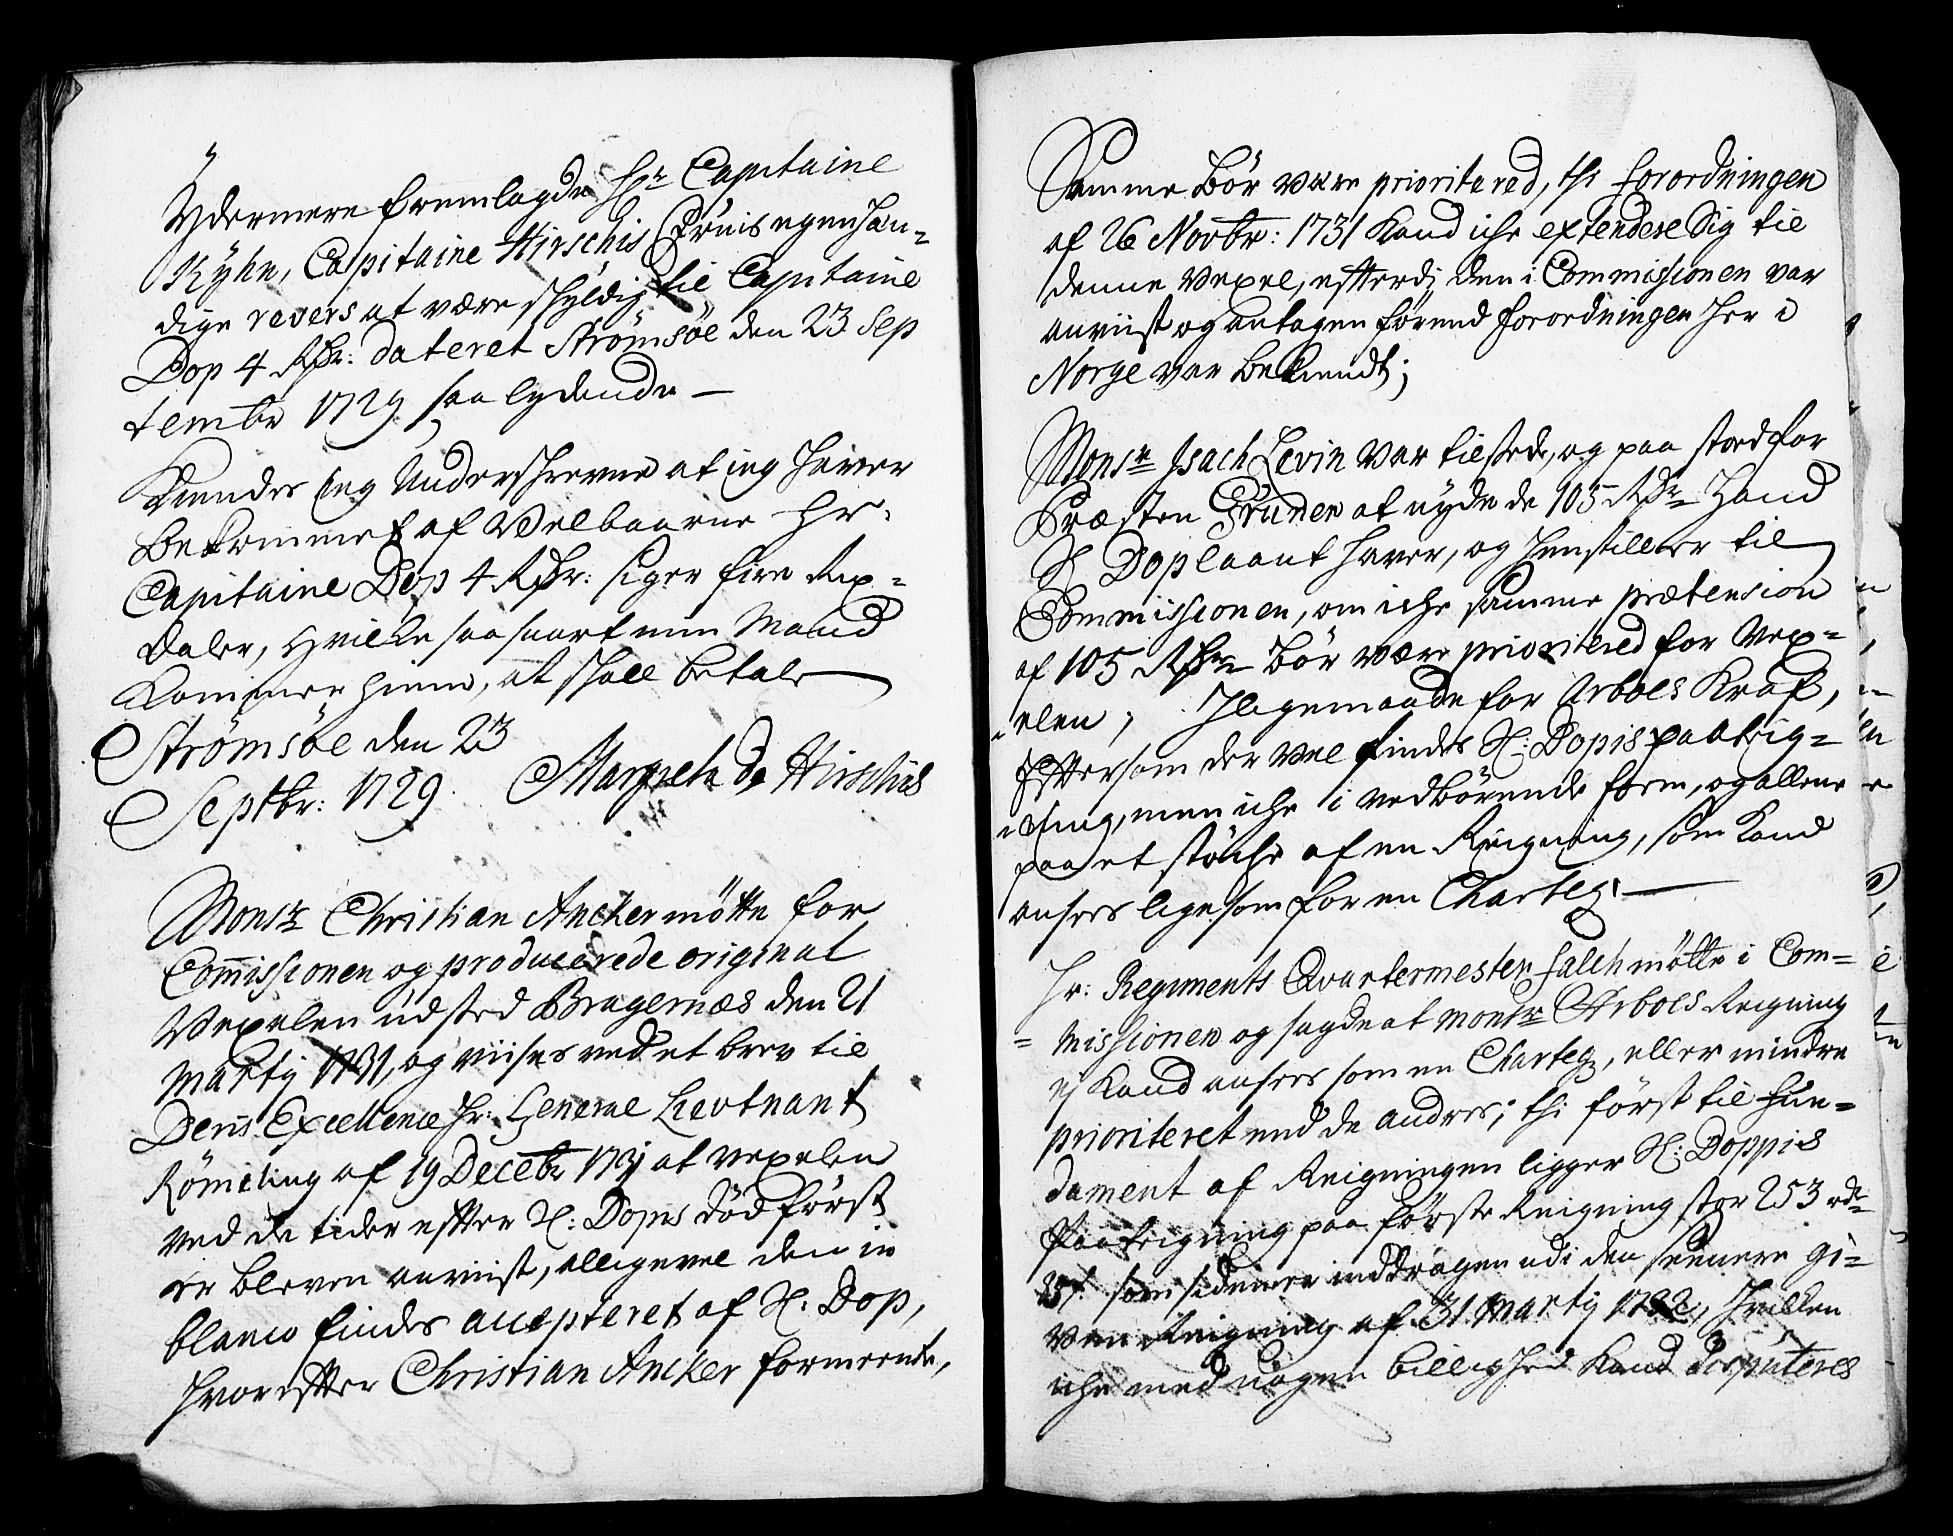 Ydermere fremlagde Hr Capitaine
Kyhn, Capitaine Hirschis Fruis egenhæn-
dige revers at være skyldig til Capitaine
Dop 4 Rdr: dateret Strømsøe den 23 Sep
tembr 1729 saa lydende –
Kiendes jeg Underschrevne at ieg haver
bekommet af Velbaarne Hr.
Capitaine Dop 4 Rdr: siger fire Rix-
daler, hvilke saa snart min Mand
kommer hiem, at skall betale
Strømsøe den 23
Septbr: 1729. Margreta Hirschis
Monsr Christian Ancker møtte for
Commissionen og producerede original
Vexelen udsted Bragernæs den 21
Martij 1731, og viises ved et brev til
Deris Excellence Hr: General Lieutnant
Römeling af 19 Decebr 1731 at vexelen
ved de tider efter S: Dopis død først
er bleven anviist, alligevel den in
blanco findes accepteret af S: Dop,
hvorefter Christian Ancker formeente,
Samme bør være prioritered, thi forordningen
af 26 Novbr: 1731 kand iche extendere sig til
denne Vexel, efterdi den i Commissionen var
anviist og antagen førend forordningen her i
Norge var bekiendt;
Monsr Isach Levin var tilstede, og paa stod for
Præsten Grunen at nyde de 105 Rdr hand
S Dop laant haver, og henstiller til
Commissionen, om iche samme prætension
af 105 Rdr bør være prioritered for Vex-
elen; Iligemaade for Arboes Kraf,
Eftersom der vel findes S: Dopis paateig-
ning, men iche i vedbørende form, og allene
paa et støche af en Reigning, som kand
ansees ligesom for en Charteg: –
Hr: Regiments Qvartermester Falch møtte i Com-
missionen og sagde at Monsr Arboes Reigning
ej kand ansees som en Charteg, eller mindre
prioriteret end de andres; thi først til Fun-
dament af Reigningen ligger S: Doppis
Paateigning paa første Reigning stor 253 rdr
som sidenere inddragen udi den seenere gi-
ven Reigning af 31 Martij 1732, hvilken
iche med nogen billighed kand disputeres